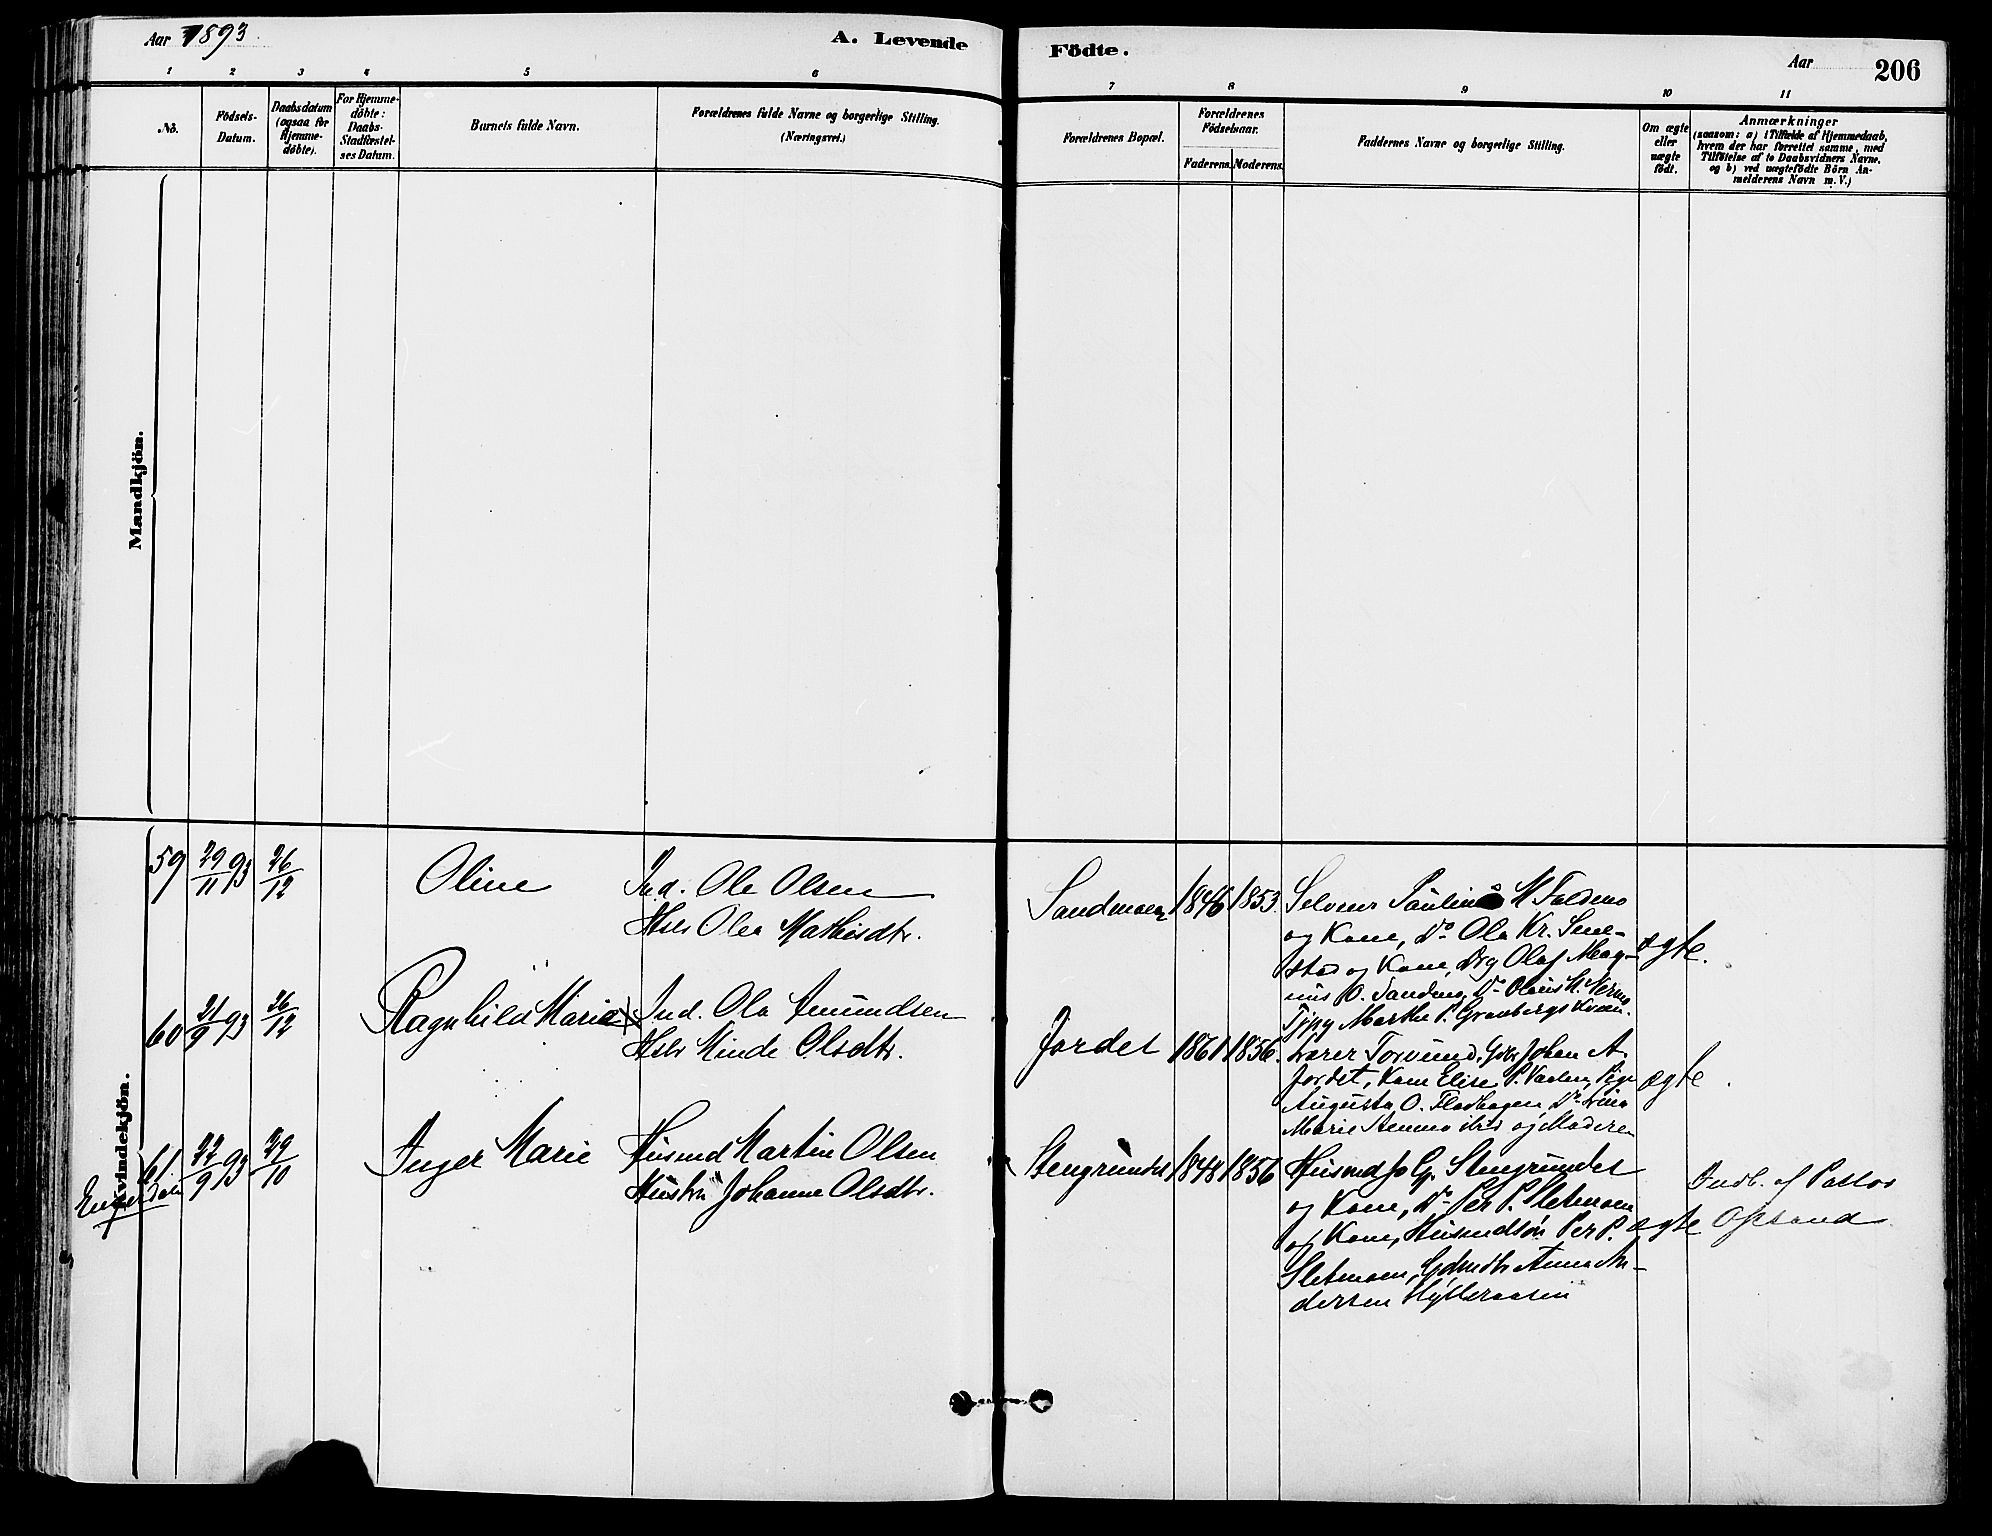 Aar 1893.
A. Levende
Födte.
Aar
206
1 2 3 4 5 6 7 8 9 10 11
No.
Födsels-
Datum.
Daabsdatum
(ogsaa for
Hjemme-
döbte).
For Hjemme-
döbte:
Daabs-
Stadfæstel-
ses Datum.
Barnets fulde Navn.
Forældrenes fulde Navne og borgerlige Stilling.
(Næringsvei.)
Forældrenes Bopæl.
Forældrenes
Födselsaar.
Faderens. Moderens.
Faddernes Navne og borgerlige Stilling.
Om ægte
eller
uægte
födt.
Anmærkninger
(saasom: a) i Tilfælde af Hjemmedaab,
hvem der har forrettet samme, med
Tilföielse af to Daabsvidners Navne,
og b) ved uægtefödte Börn An-
melderens Navn m. V.)
Mandkjön.
Kvindekjön.
59
29/11 93
26/12
Oline
Ind. Ole Olsen
Hstr Olea Mathisdtr.
Sandmoen
1846
1853.
Selveier M
og Kone, Do Ola Kr.
og Kone, Olaf Mag-
nus O. Sandmo, Do
Marthe P. Gravberget Kvæn.
ægte.
60
21/9 93
26/12
Ragnhild Marie
Ind. Ola Amundsen
Hstr Minde Olsdtr.
Jordet
1861
1856.
Lærer Torvund, Johan A.
Jordet, Kone Elise P. Pige
Augusta O. Flodhagen, Do
Marie og Moderen
ægte
61
Engerdalen
22/9 93
29/10
Inger Marie
Husmd Martin Olsen
Hustru Johanne Olsdtr.
Stengrundet
1848
1856
Husmd Jo G. Stengrundet
og Kone, Do Per P. Sletmoen
og Kone, Husmdsön Per P.
Sletmoen, Anna An-
dersen Hylleraasen
ægte
Indb. af Pastor
Opsand